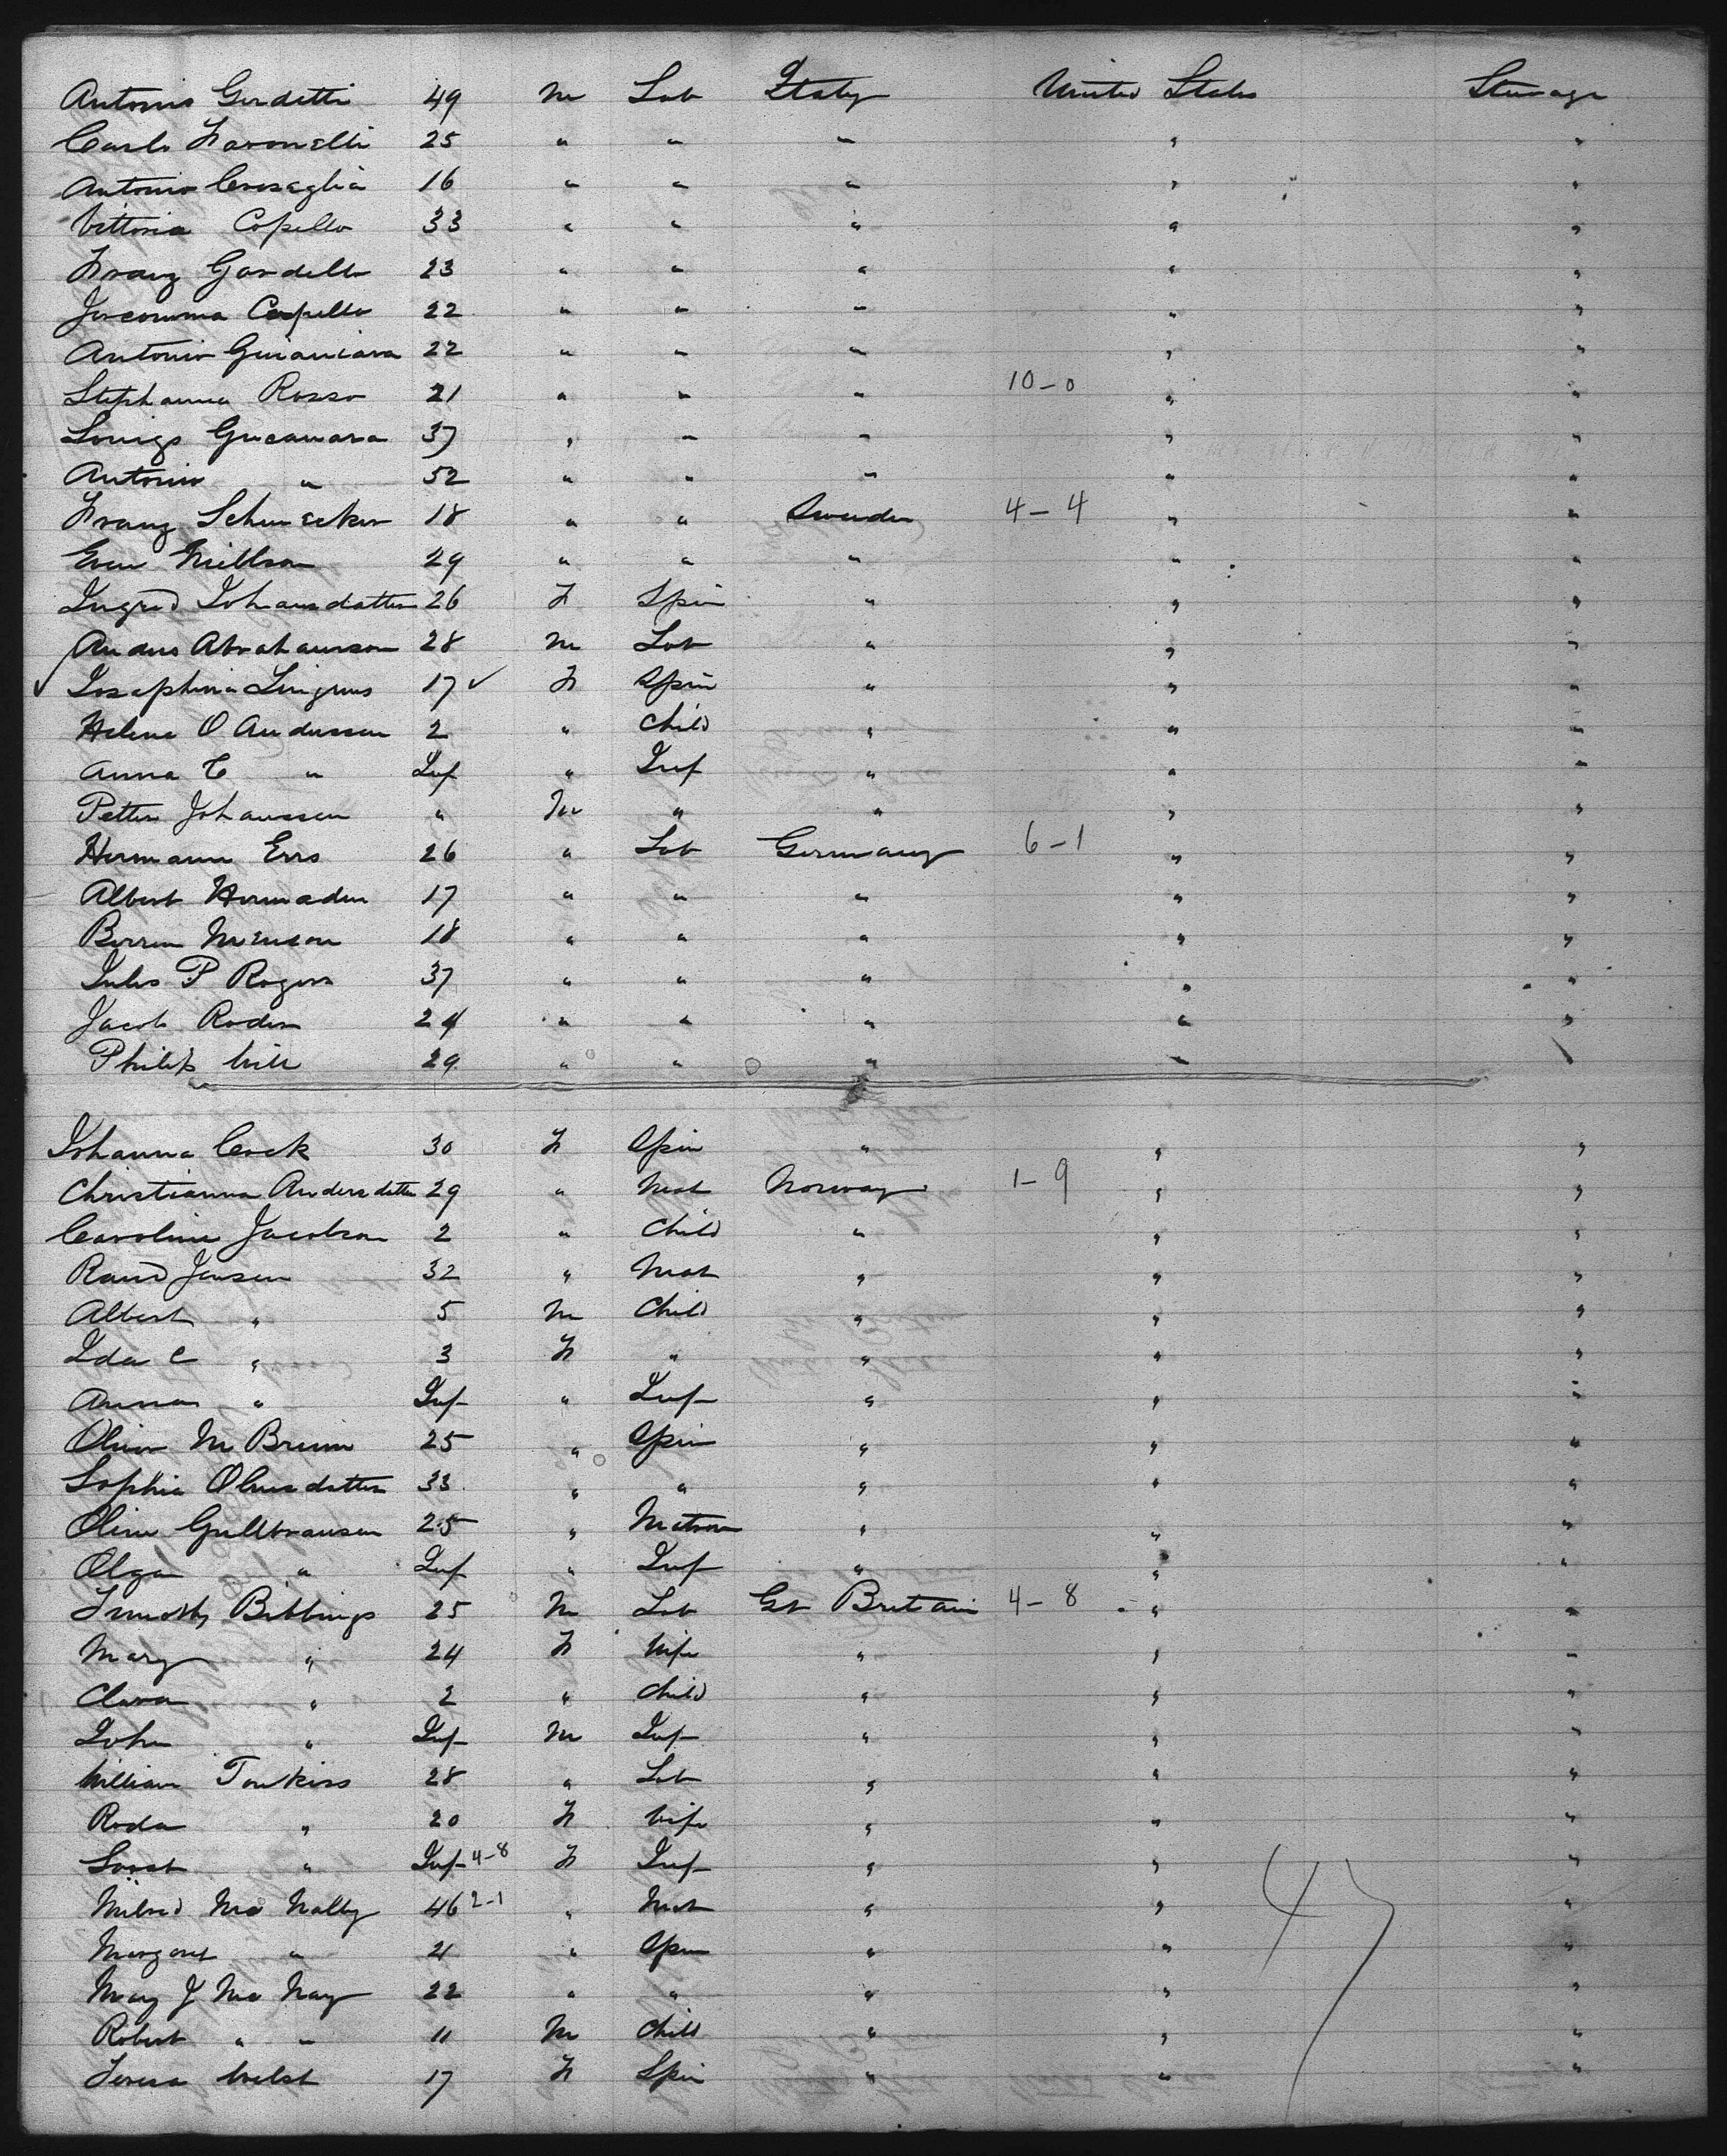 Antonio Girdetti 49 M Lab Italy United States Steerage
Carlo Favonelli 25 " " " " "
Antonio Cresaglia 16 " " " " "
Vittoria Copello 33 " " " " "
Franz Gardello 23 " " " " "
Jocomma Capello 22 " " " " "
Antonio Guiancara 22 " " " " "
Stephanna Rosso 21 " " " 10-0 " "
Louigs Gucanara 37 " " " " "
Antonio " 52 " " " " "
Franz Schmecker 18 " " Sweden 4-4 " "
Even Nillson 29 " " " " "
Ingrid Johansdatter 26 F Spin " " "
Andus Abrahamson 28 M Lab " " "
✓ Josephina Lingrus 17 ✓ F Spin " " "
Helena O Andersson 2 " Child " " "
Anna C " Inf " Inf " " "
Petter Johanssen " M " " " "
Hermann Erro 26 " Lab Germany 6-1 " "
Albert Hermaden 17 " " " " "
18 " " " " "
Jules P Rogers 37 " " " " "
Jacob Roder 24 " " " " "
Philip Will 29 " " " " "
Johanna Cock 30 F Spin " " "
Christianna Andersdatter 29 " Mat Norway 1-9 " "
Caroline Jacobson 2 " Child " " "
Rand Jensen 32 " Mat " " "
Albert " 5 M Child " " "
Ida C " 3 F " " " "
Anna " Inf " Inf " " "
Olivia M Bruim 25 " Spin " " "
Sophia Olmsdatter 33 " " " " "
Oline Gullbransen 25 " Matron " " "
Olga " Inf " Inf " " "
Timothy Bibbings 25 M Lab Gt Britain 4-8 " "
Mary " 24 F Wife " " "
Clara " 2 " Child " " "
John " Inf M Inf " " "
William Tonkins 28 " Lab " " "
Roda " 20 F Wife " " "
" Inf 4-8 F Inf " " "
Milred Mc Nally 46 2-1 " Mat " " "
Margaret " 21 " Spin " " "
Mary J Mc Nay 22 " " " " "
Robert " " 11 M Child " " "
Teresa Welst 17 F Spin " " "
47